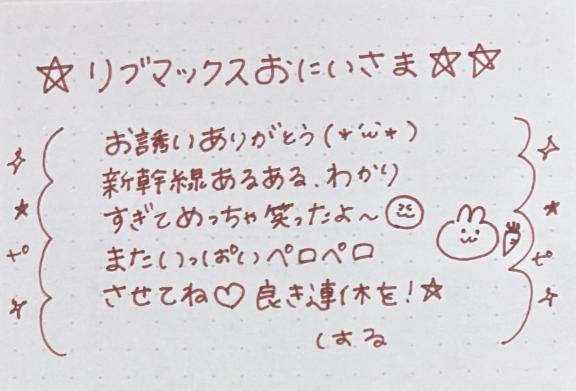 ☆リブマックスおにいさま☆☆
お誘いありがとう(*´ω`*)
新幹線あるある、わかり
すぎてめっちゃ笑ったよ〜
またいっぱいペロペロ
させてね♡良き連休を!★
しする